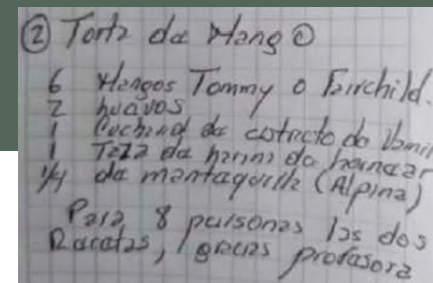 ② Torta de Mango
6 Mangos Tommy o Fairchild.
2 huevos
1 Cucharad de extracto de Vainil
1 Taza de harina de hornear
1/4 de mantequilla (Alpina)
Para 8 personas las dos
Recetas, gracias profesora